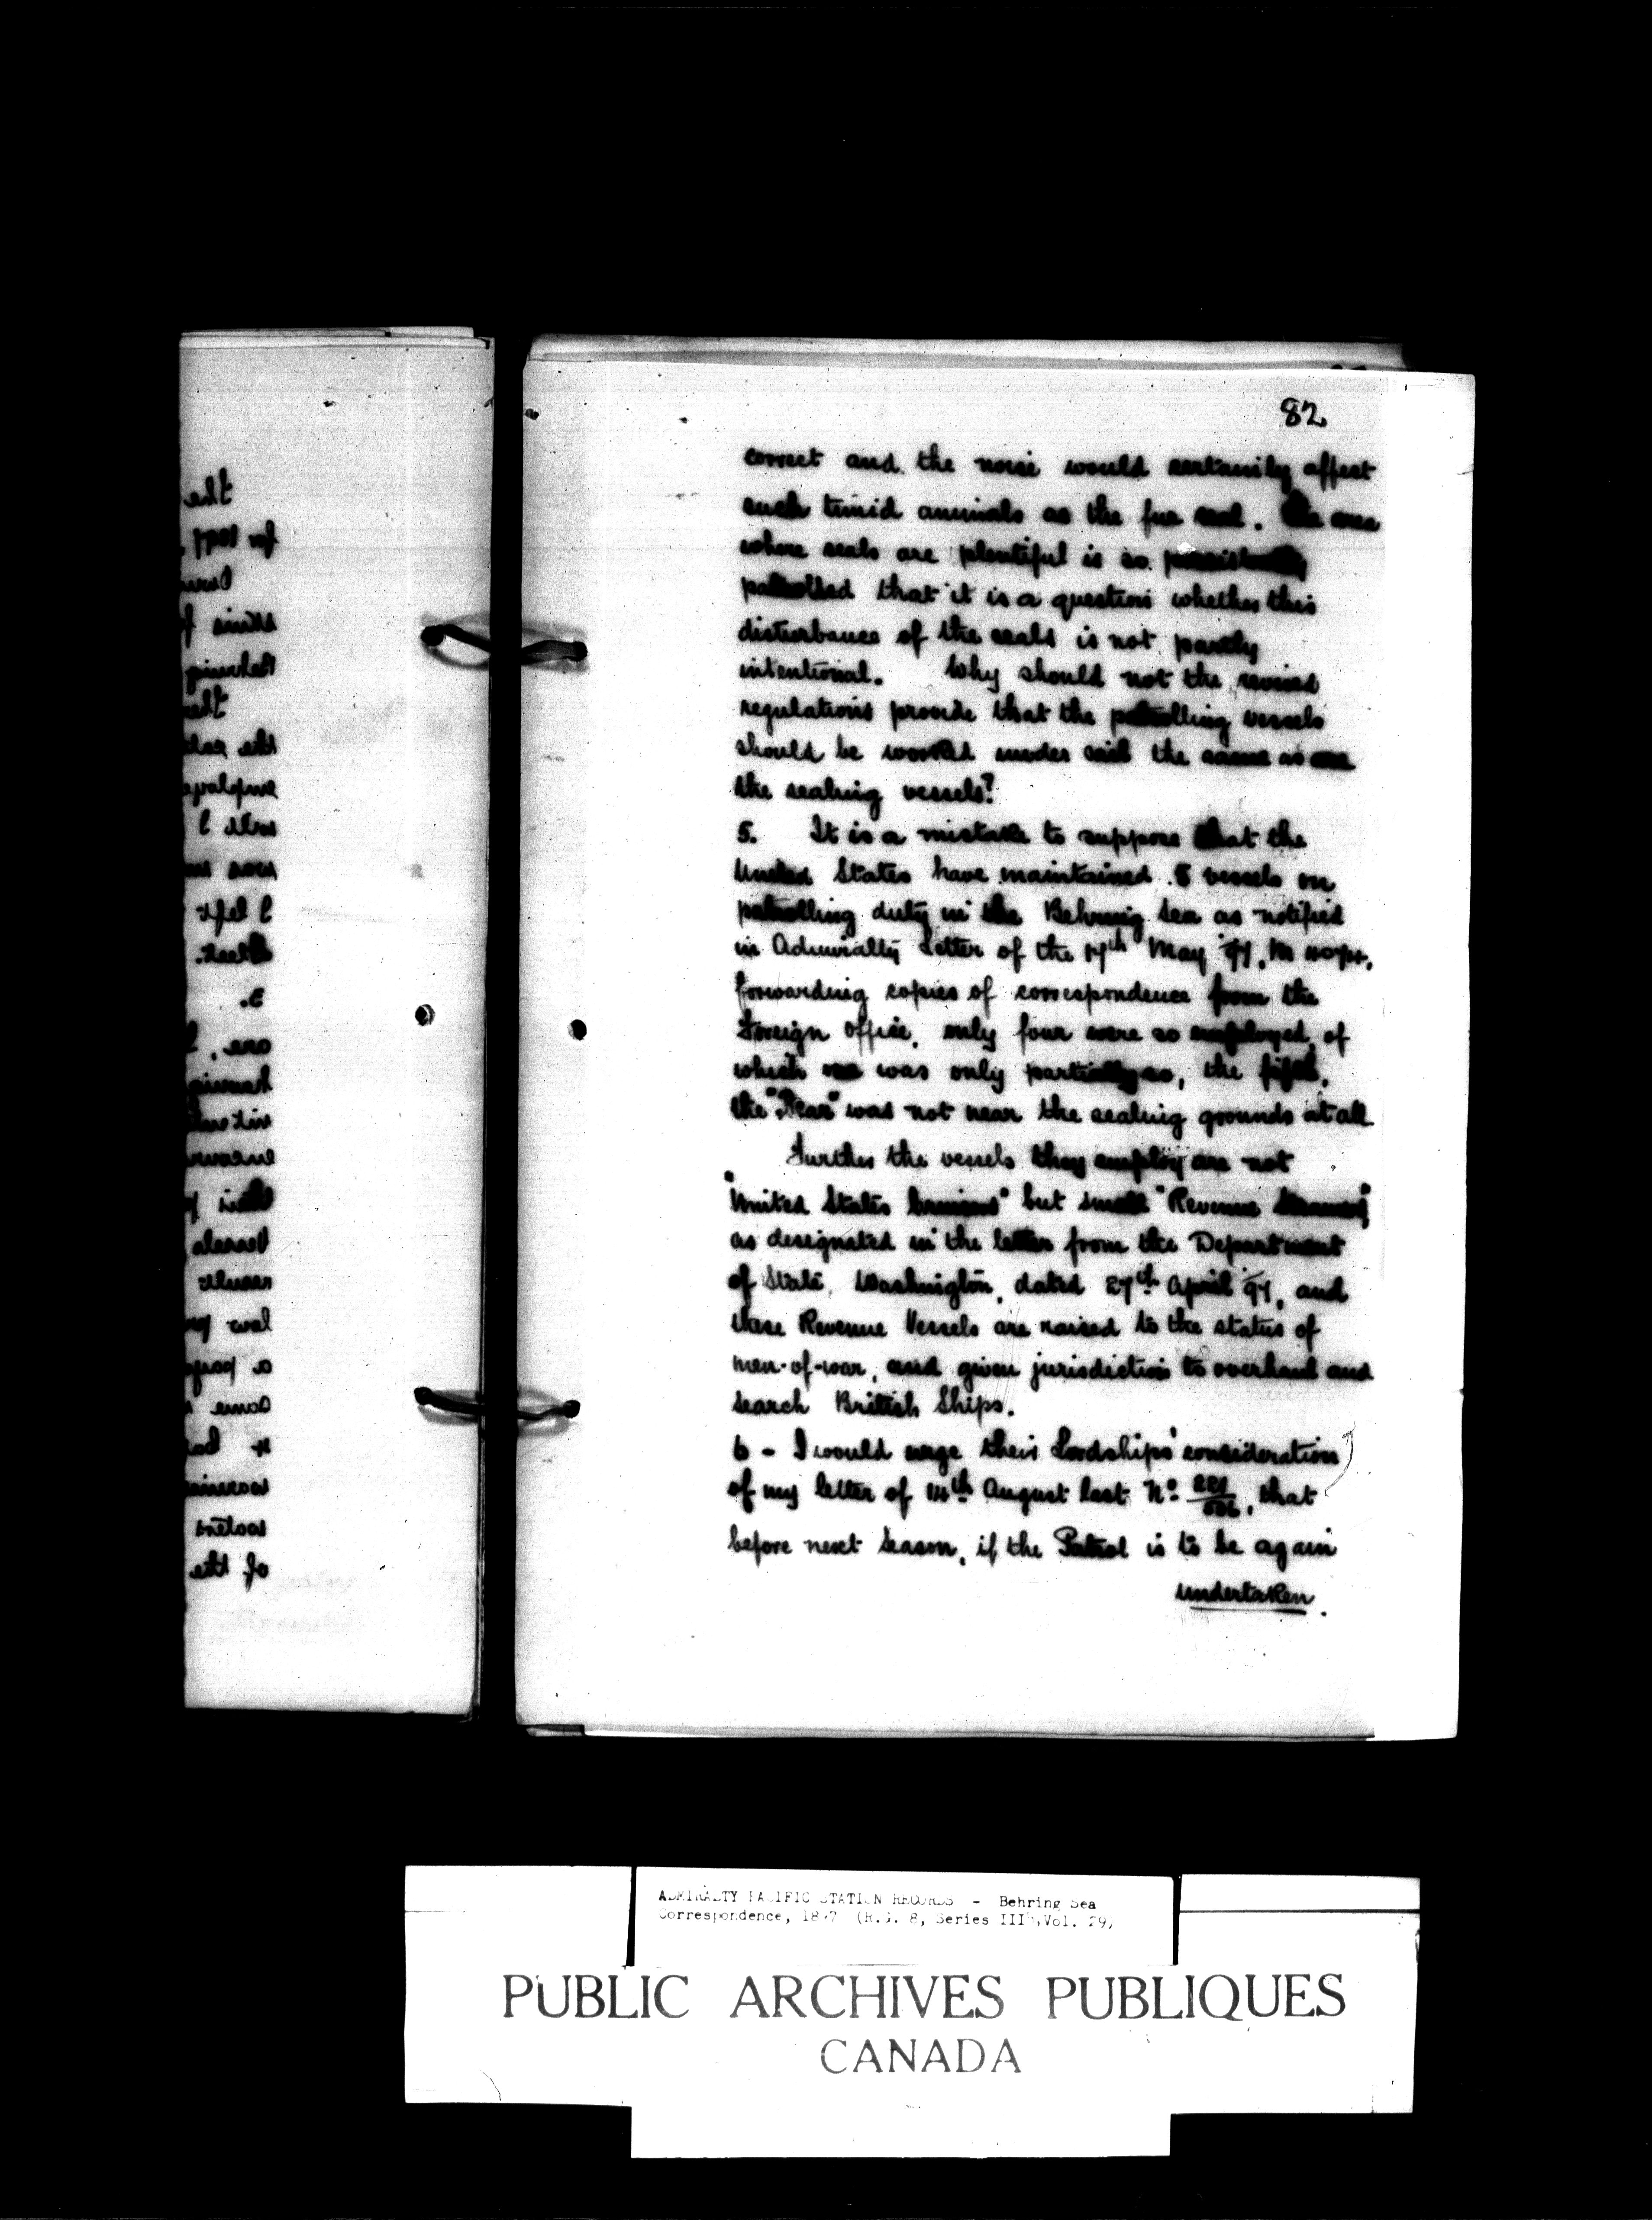 82
correct and the noise would certainily affect
such timid animals as the fur seal. The area
where seals are plentiful is so persistently
patrolled that it is a question whether this
disturbance of the seals is not partly
intentional. Why should not the revised
regulations provide that the patrolling vessels
should be worked under sail the same as are
the sealing vessels?
5. It is a mistake to suppose that the
United States have maintained 5 vessels on
patrolling duty in the Behring Sea as notified
in Admiralty Letter of the 17th May 97, M
forwarding copies of correspondence from the
Foreign Office, only four were so employed, of
which one was only partially so, the fifth,
the "Bear" was not near the sealing grounds at all.
Further the vessels they employ are not
"United States Cruisers" but small "Revenue Steamers"
as designated in the letter from the Department
of State, Washington, dated 27th April 97, and
these Revenue Vessels are raised to the status of
men-of-war, and given jurisdiction to overhaul and
search British Ships.
6 - I would urge their Lordships' consideration
of my letter of 14th August last No. that
before next season, if the Patrol is to be again
undertaken.
ADMIRALTY PACIFIC STATION RECORDS - Behring Sea
Correspondence, 1897 (R.G. 8, Series III, Vol. 29)
PUBLIC ARCHIVES PUBLIQUES
CANADA